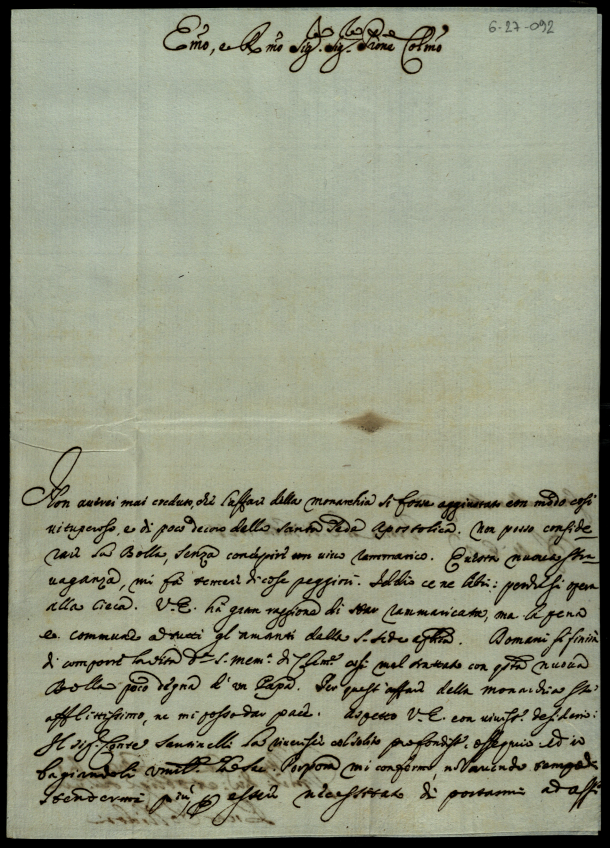 6-27-092
Emo, e Rmo Sig. Sig. Prone Colmo
Non avrei mai creduto, che l'affare della monarchia si fosse aggiustato con modo così
vituperoso, e di poco decoro della Santa Sede Apostolica. Non posso conside=
rare la Bolla, senza concepire un vivo rammarico. E questa nuova stra=
vaganza, mi fà temere di cose peggiori. Iddio ce ne liberi: perche si opera
alla cieca. V.E. hà gran raggione di star rammaricata, ma la pena
è commune à tutti gl'amanti della S. Sede
di comporre la S. mem. di Clem. così mal trattato con questa nuova
Bolla poco degna d'un Papa. Per questi affari della monarchia sto
afflittissimo, ne mi posso dar pace. Aspetto V.E. con viviss. desiderio:
Il Sig. Conte Santinelli la riverisce col solito profondiss. ossequio ed io
bagiandole umilte. la Porpora mi confermo, non avendo tempo di
stendermi più per esser necessitato di portarmi ad